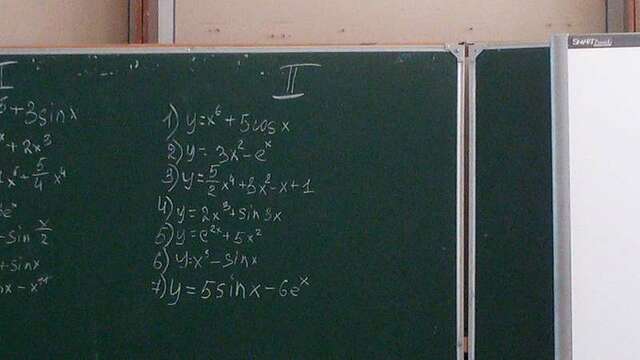 I
II
+ 3sinx
+ 2x³
+ 5/4 x⁴
sin x/2
+ sinx
1) y=x⁶ + 5cosx
2) y= 3x² - eˣ
3) y= 5/2 x⁴ + 3x² - x + 1
4) y= 2x³ + sin3x
5) y= e²ˣ + 5x²
6) y=x⁵ - sinx
7) y = 5sinx - 6eˣ
SMART